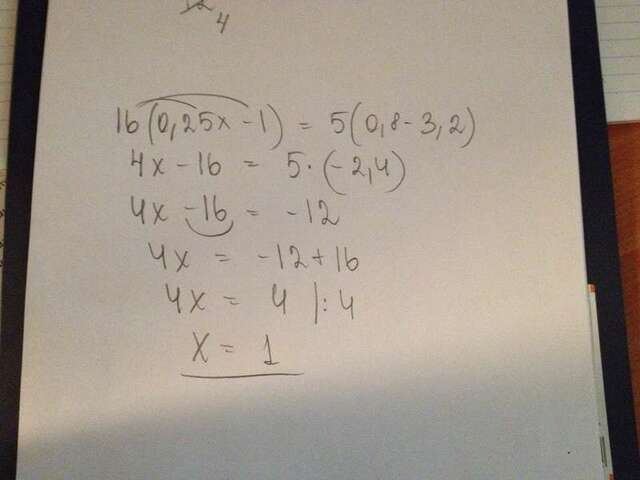 4
16(0,25x-1) = 5(0,8-3,2)
4x-16 = 5·(-2,4)
4x-16 = -12
4x = -12+16
4x = 4 |:4
x = 1